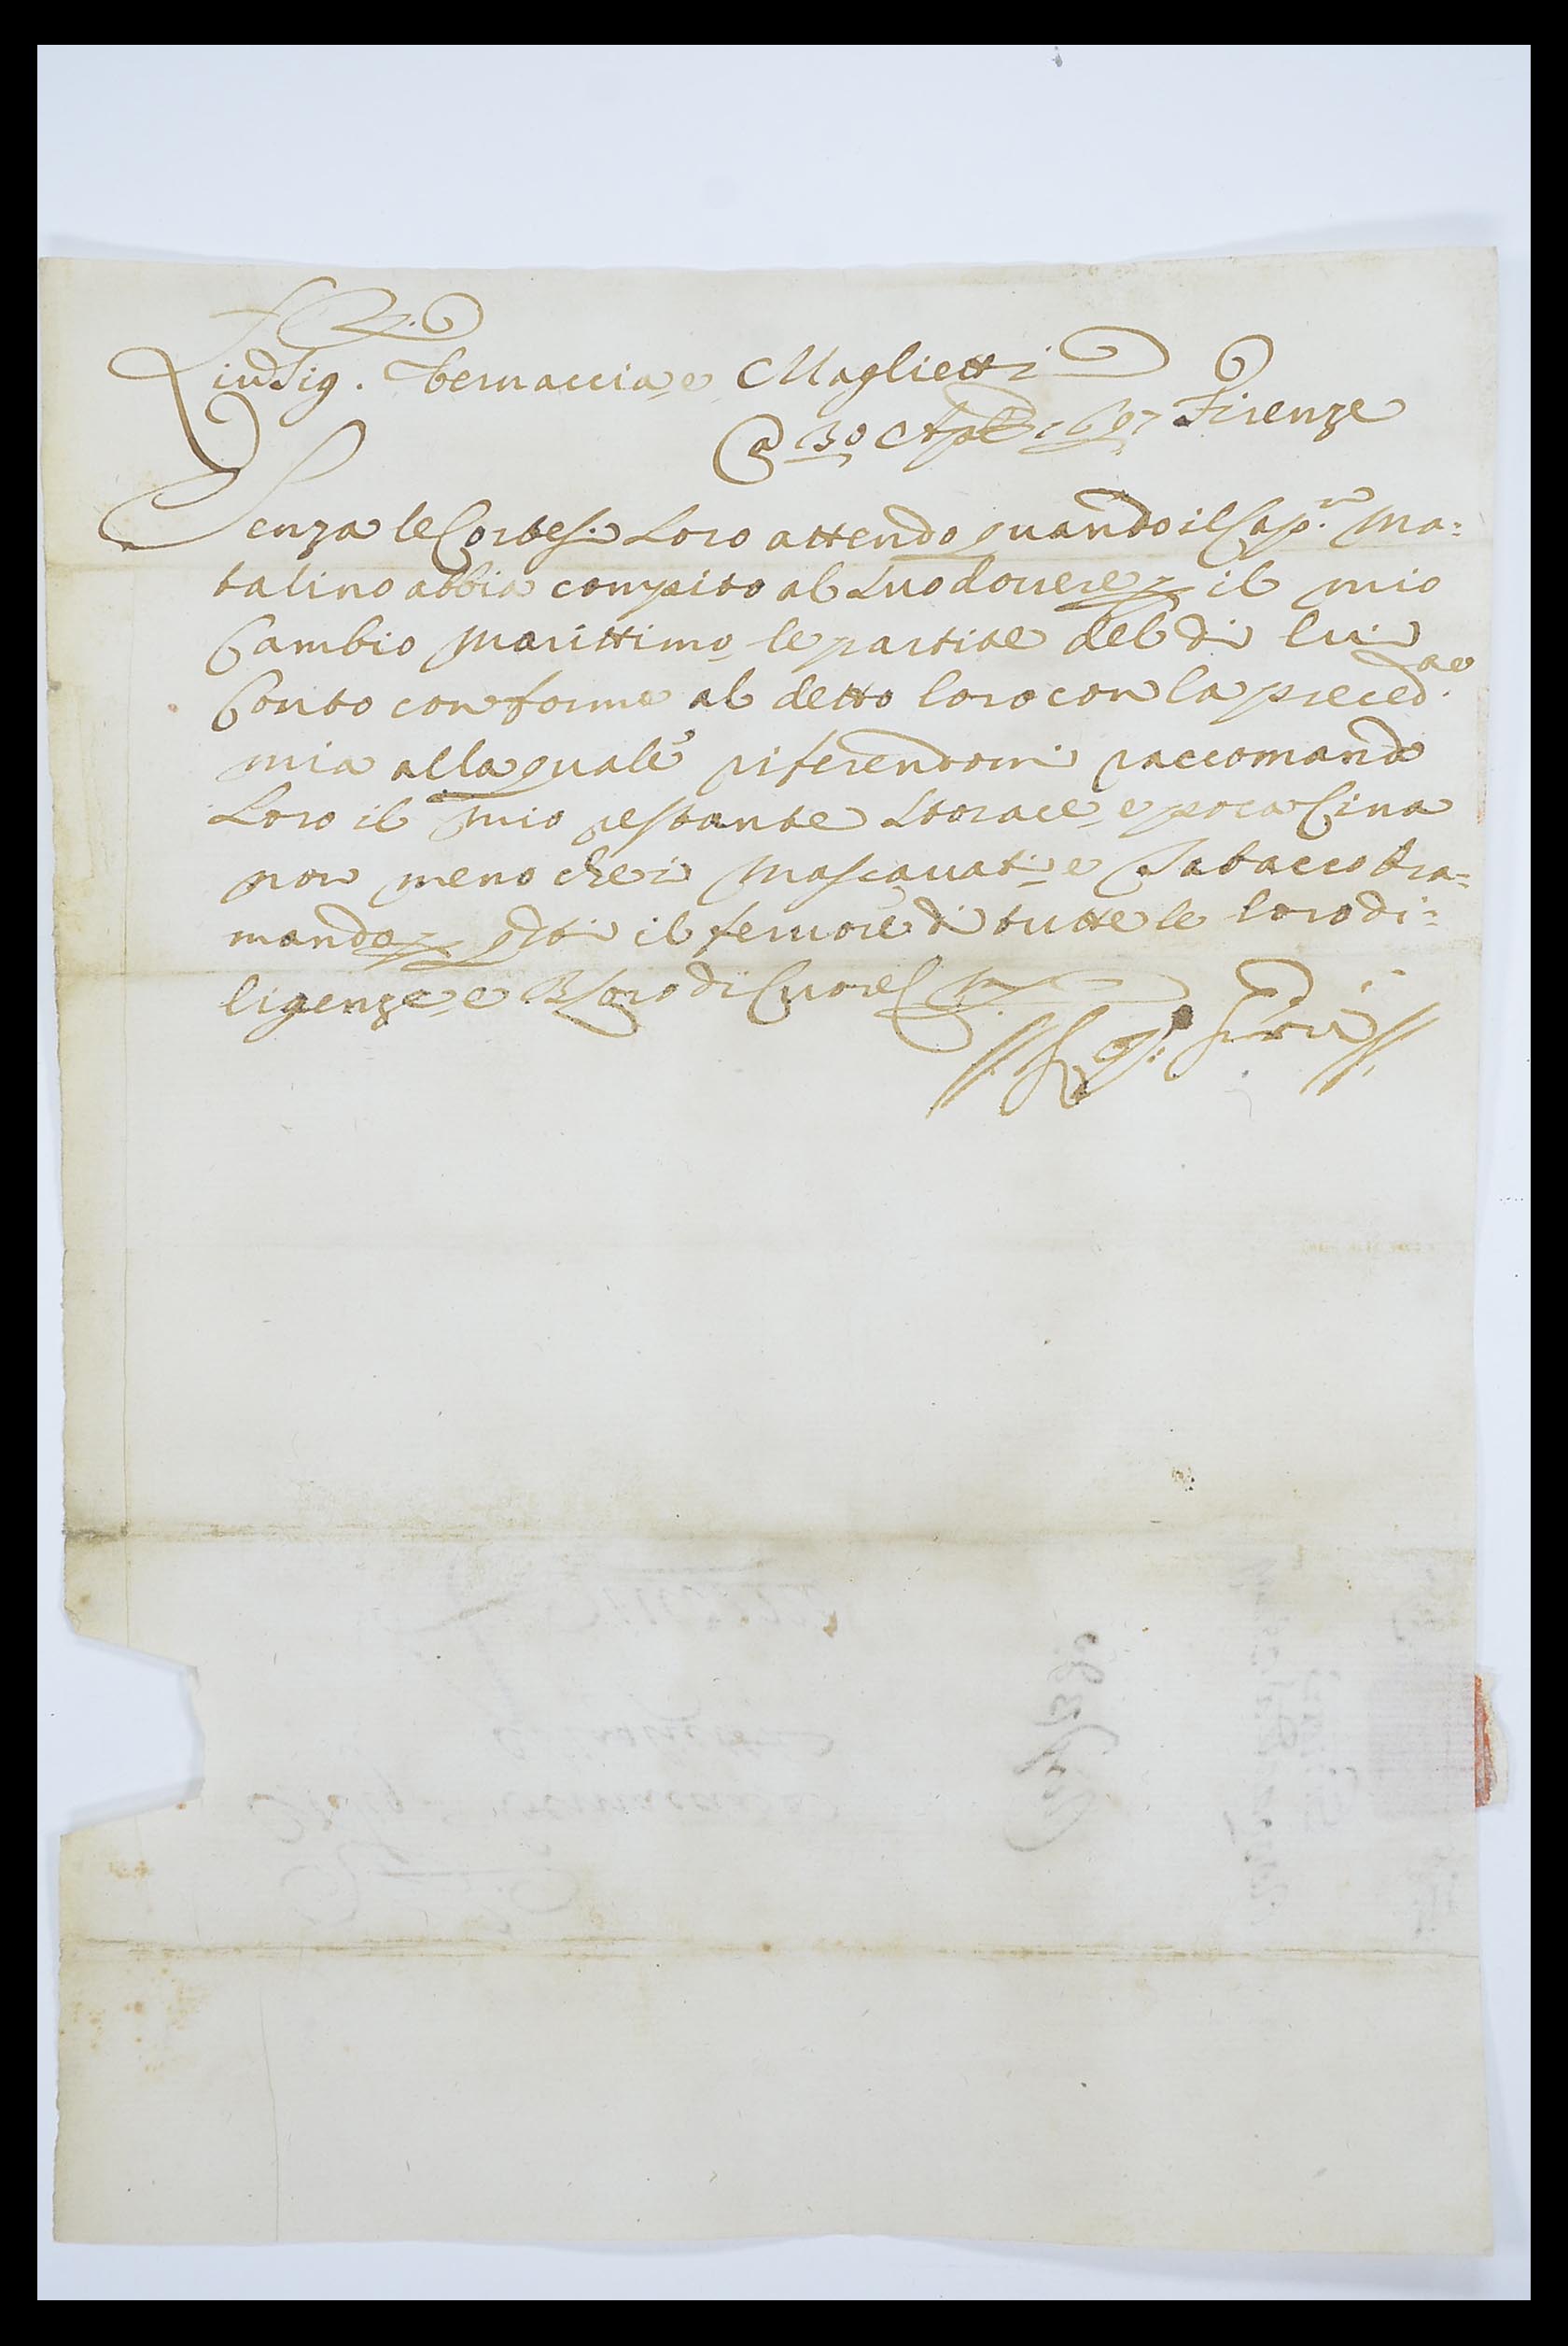 Sig. Vernaccia e Maglietti
a 30 Aple 1697 Firenze
Senza le Cortesi. Loro attendo quando il Cap.no Ma=
talino abbia compito al suo dovere p il mio
Cambio Marittimo le partite del di lui
Conto conforme al detto loro con la preced.te
mia alla quale riferendomi raccomando
Loro il mio restante Storace, e poca Cina
non meno che i Mascavati e Tabacco bra=
mando p il fervore di tutte le loro di=
ligenze e B Loro di Cuore